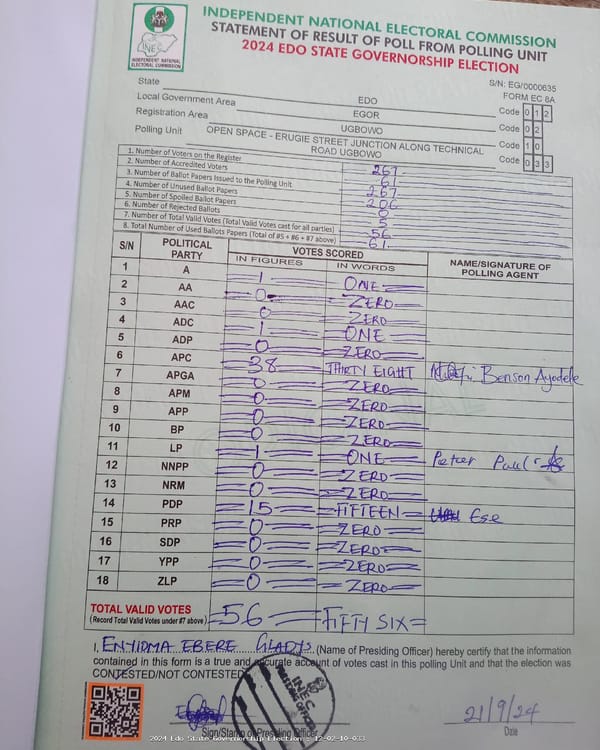 INDEPENDENT NATIONAL ELECTORAL COMMISSION
STATEMENT OF RESULT OF POLL FROM POLLING UNIT
2024 EDO STATE GOVERNORSHIP ELECTION
INEC
INDEPENDENT NATIONAL ELECTORAL COMMISSION
S/N: EG/0000635
FORM EC 8A
State EDO Code 0 1 2
Local Government Area EGOR Code 0 2
Registration Area UGBOWO Code 1 0
Polling Unit OPEN SPACE - ERUGIE STREET JUNCTION ALONG TECHNICAL ROAD UGBOWO Code 0 3 3
1. Number of Voters on the Register 267
2. Number of Accredited Voters 61
3. Number of Ballot Papers Issued to the Polling Unit 267
4. Number of Unused Ballot Papers 206
5. Number of Spoiled Ballot Papers 0
6. Number of Rejected Ballots 5
7. Number of Total Valid Votes (Total Valid Votes cast for all parties) 56
8. Total Number of Used Ballots Papers (Total of #5 + #6 + #7 above) 61
S/N POLITICAL PARTY VOTES SCORED NAME/SIGNATURE OF POLLING AGENT
IN FIGURES IN WORDS
1 A 1 ONE
2 AA 0 ZERO
3 AAC 0 ZERO
4 ADC 1 ONE
5 ADP 0 ZERO
6 APC 38 THIRTY EIGHT Benson Ayodele
7 APGA 0 ZERO
8 APM 0 ZERO
9 APP 0 ZERO
10 BP 0 ZERO
11 LP 1 ONE Peter Paul
12 NNPP 0 ZERO
13 NRM 0 ZERO
14 PDP 15 FIFTEEN Ese
15 PRP 0 ZERO
16 SDP 0 ZERO
17 YPP 0 ZERO
18 ZLP 0 ZERO
TOTAL VALID VOTES 56 FIFTY SIX
(Record Total Valid Votes under #7 above)
I, ENYIDMA EBERE GLADYS (Name of Presiding Officer) hereby certify that the information
contained in this form is a true and accurate account of votes cast in this polling Unit and that the election was
CONTESTED/NOT CONTESTED
INEC
PRESIDING OFFICER
21/9/24
Sign/Stamp of Presiding Officer Date
2024 Edo State Governorship Election - 12-02-10-033